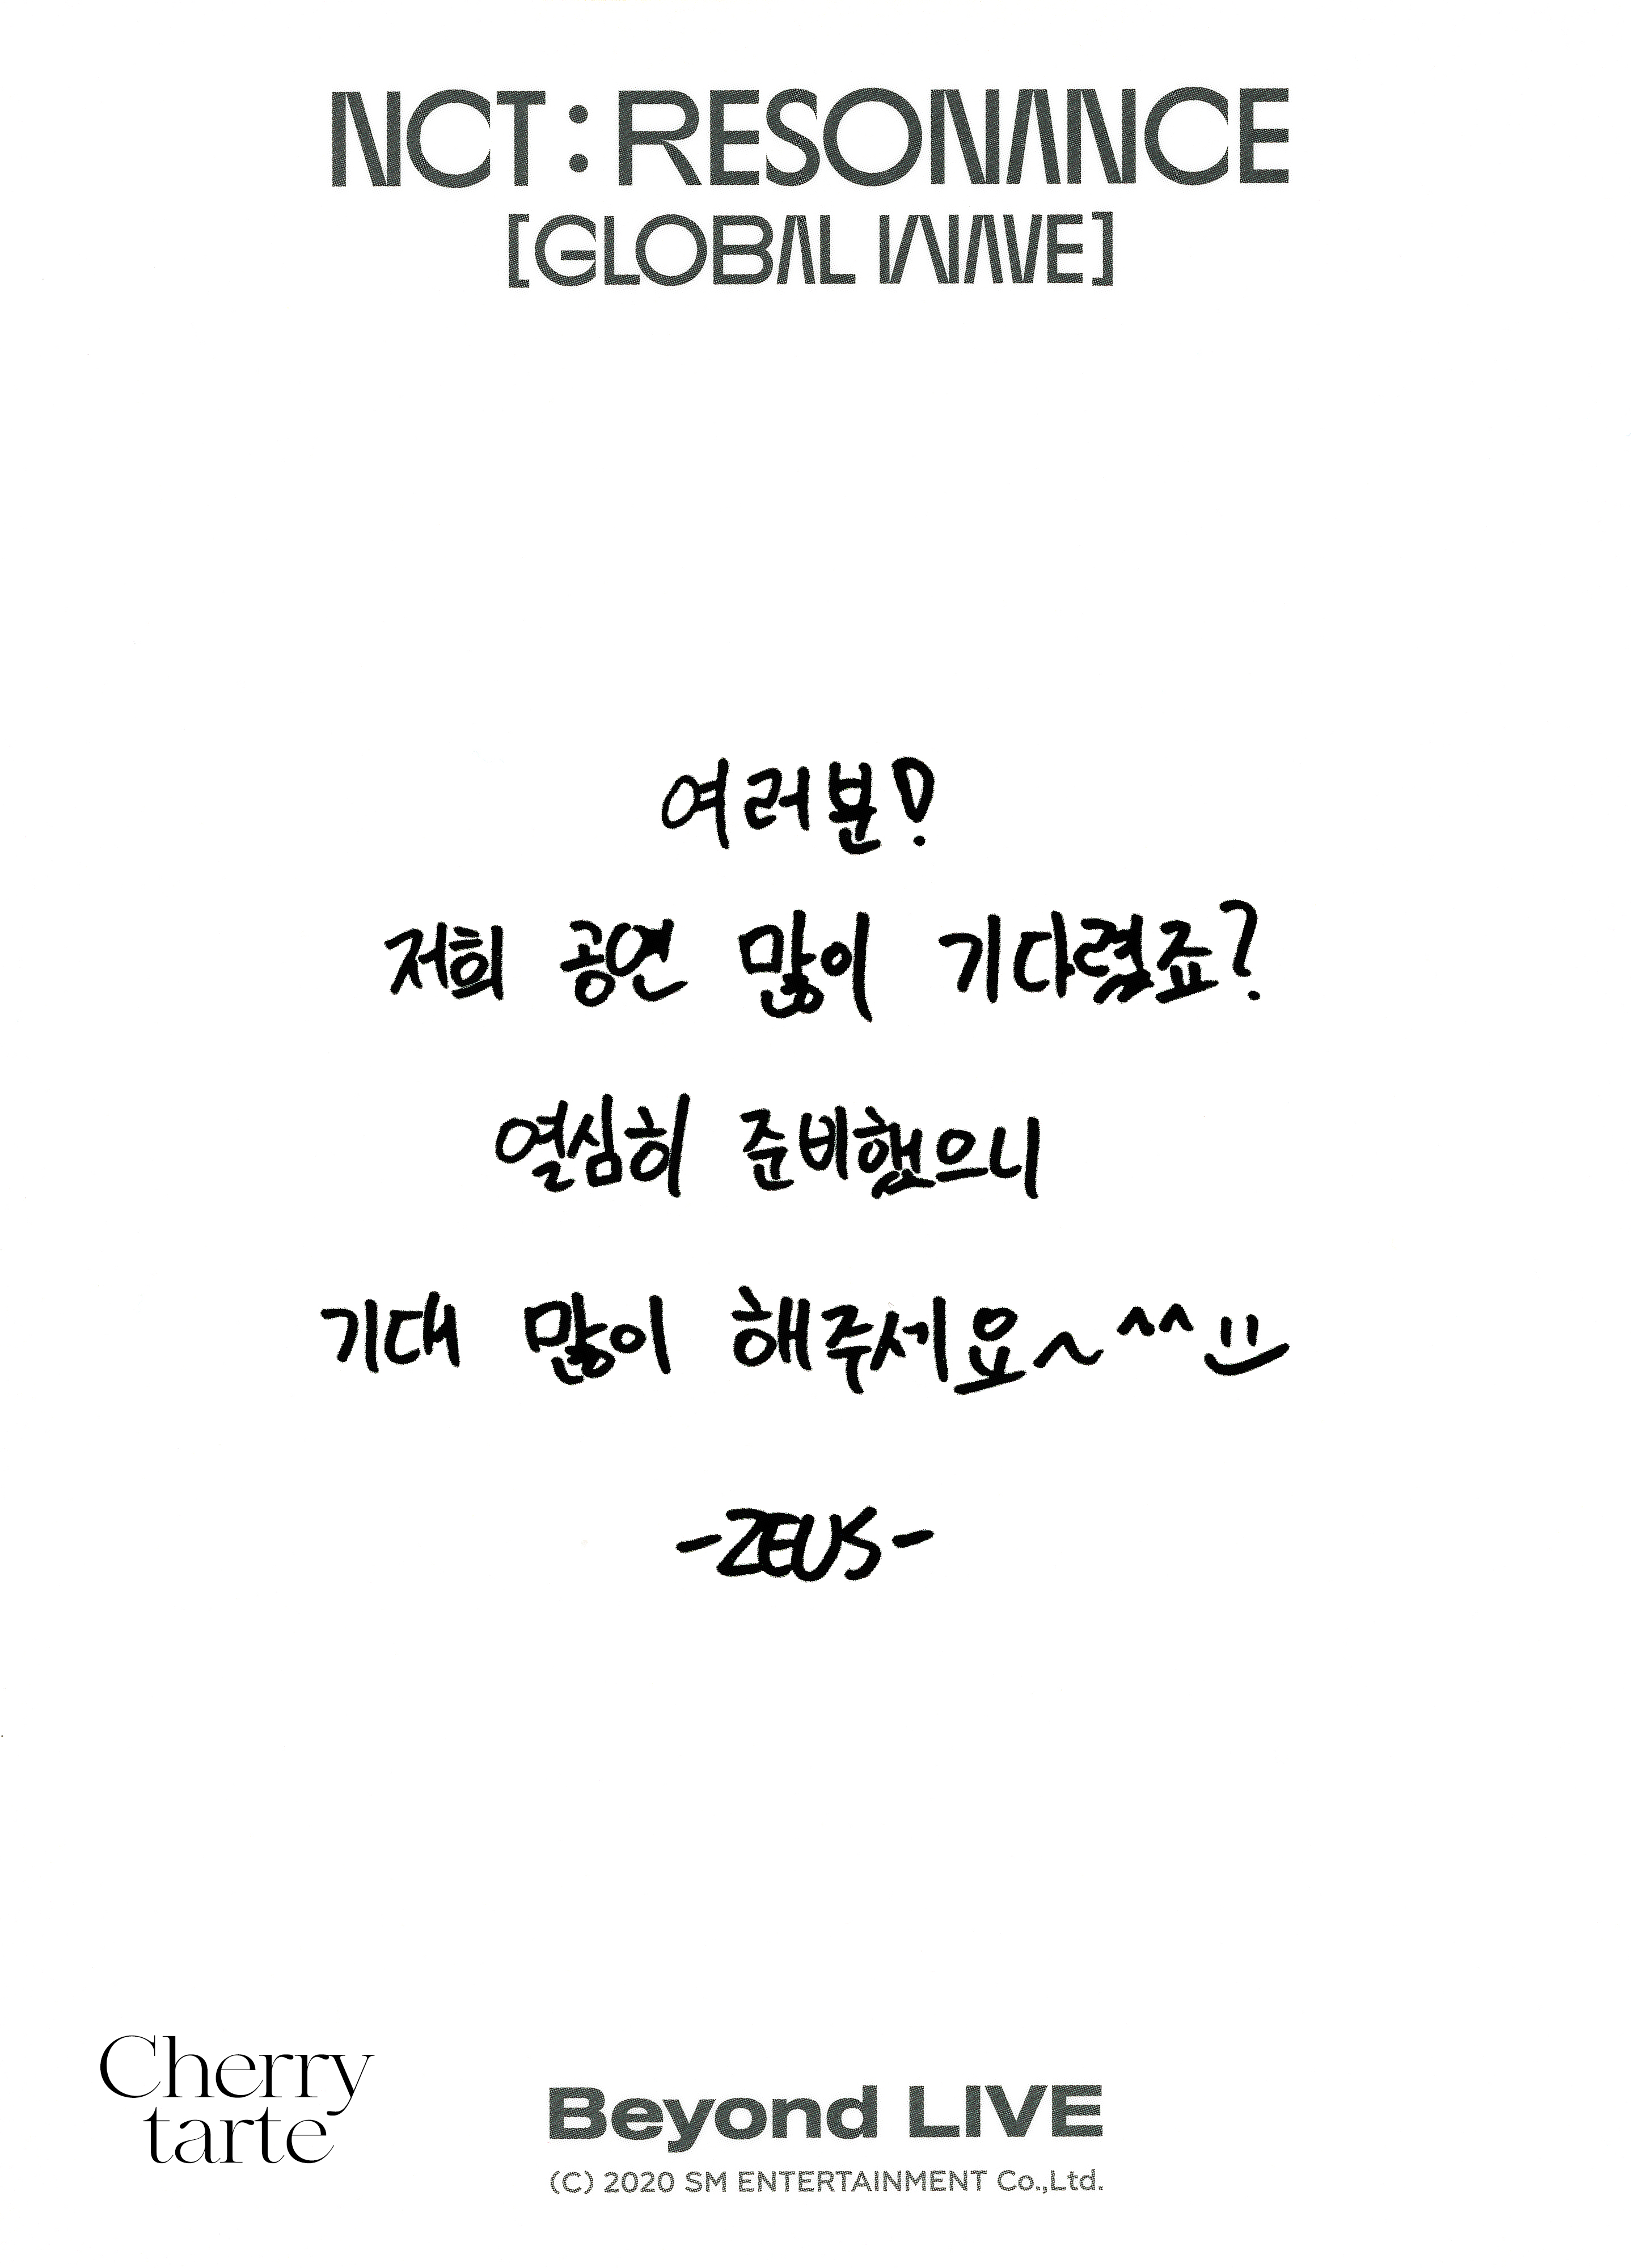 NCT : RESONANCE
[GLOBAL WAVE]
여러분!
저희 공연 많이 기다렸죠?
열심히 준비했으니
기대 많이 해주세요~^^
-ZEUS-
Cherry
tarte
Beyond LIVE
(C) 2020 SM ENTERTAINMENT Co.,Ltd.